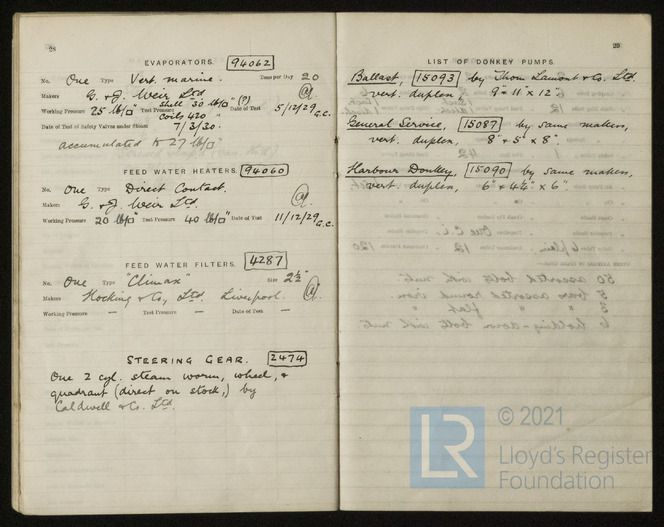 28
EVAPORATORS. 94062
No. One Type Vert. marine. Tons per Day 20
Makers G. & J. Weir Ltd
Working Pressure 25 lb/□" Test Pressure shell 30 lb/□" (?) Date of Test 5/12/29 G.C.
coils 420 "
Date of Test of Safety Valves under Steam 7/3/30.
accumulated to 27 lb/□"
FEED WATER HEATERS. 94060
No. One Type Direct Contact.
Makers G. & J. Weir Ltd.
Working Pressure 20 lb/□" Test Pressure 40 lb/□" Date of Test 11/12/29 G.C.
FEED WATER FILTERS. 4287
No. One Type "Climax" Size 2½"
Makers Hocking & Co, Ltd. Liverpool.
Working Pressure — Test Pressure — Date of Test —
STEERING GEAR. 2474
One 2 cyl. steam worm, wheel, &
quadrant (direct on stock,) by
Caldwell & Co. Ltd.
29
LIST OF DONKEY PUMPS.
Ballast, 15093 by Thom Lamont & Co. Ltd.
vert. duplex, 9" × 11" × 12".
General Service, 15087 by same makers,
vert. duplex, 8" × 5" × 8".
Harbour Donkey, 15090 by same makers,
vert. duplex, 6" × 4½" × 6".
© 2021
LR Lloyd's Register
Foundation